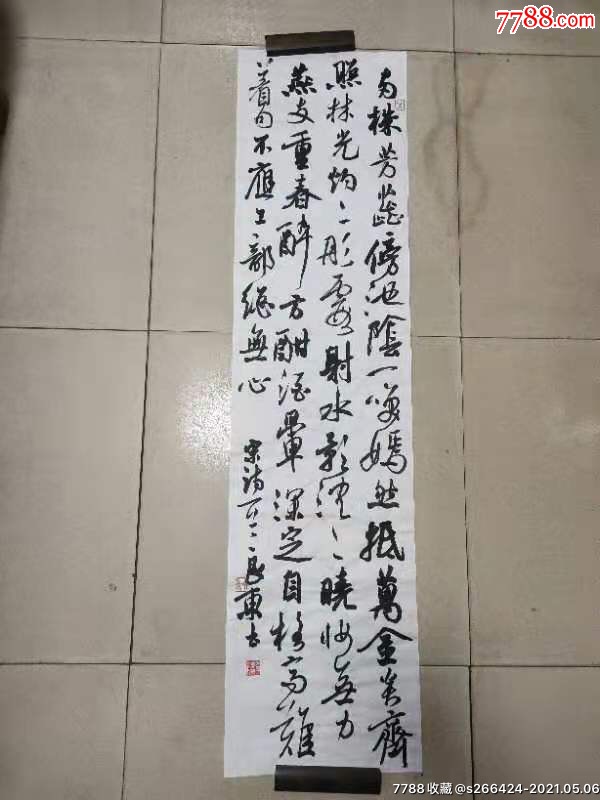 7788.com
收藏热线
两株芳蕊傍池陰一笑嫣然抵萬金火齊
照林光灼灼彤霞射水影沉沉曉妝無力
燕支重春醉方酣酒暈深定自格高難
着句不應工部總無心 宋诗 良東书
7788收藏@s266424-2021.05.06